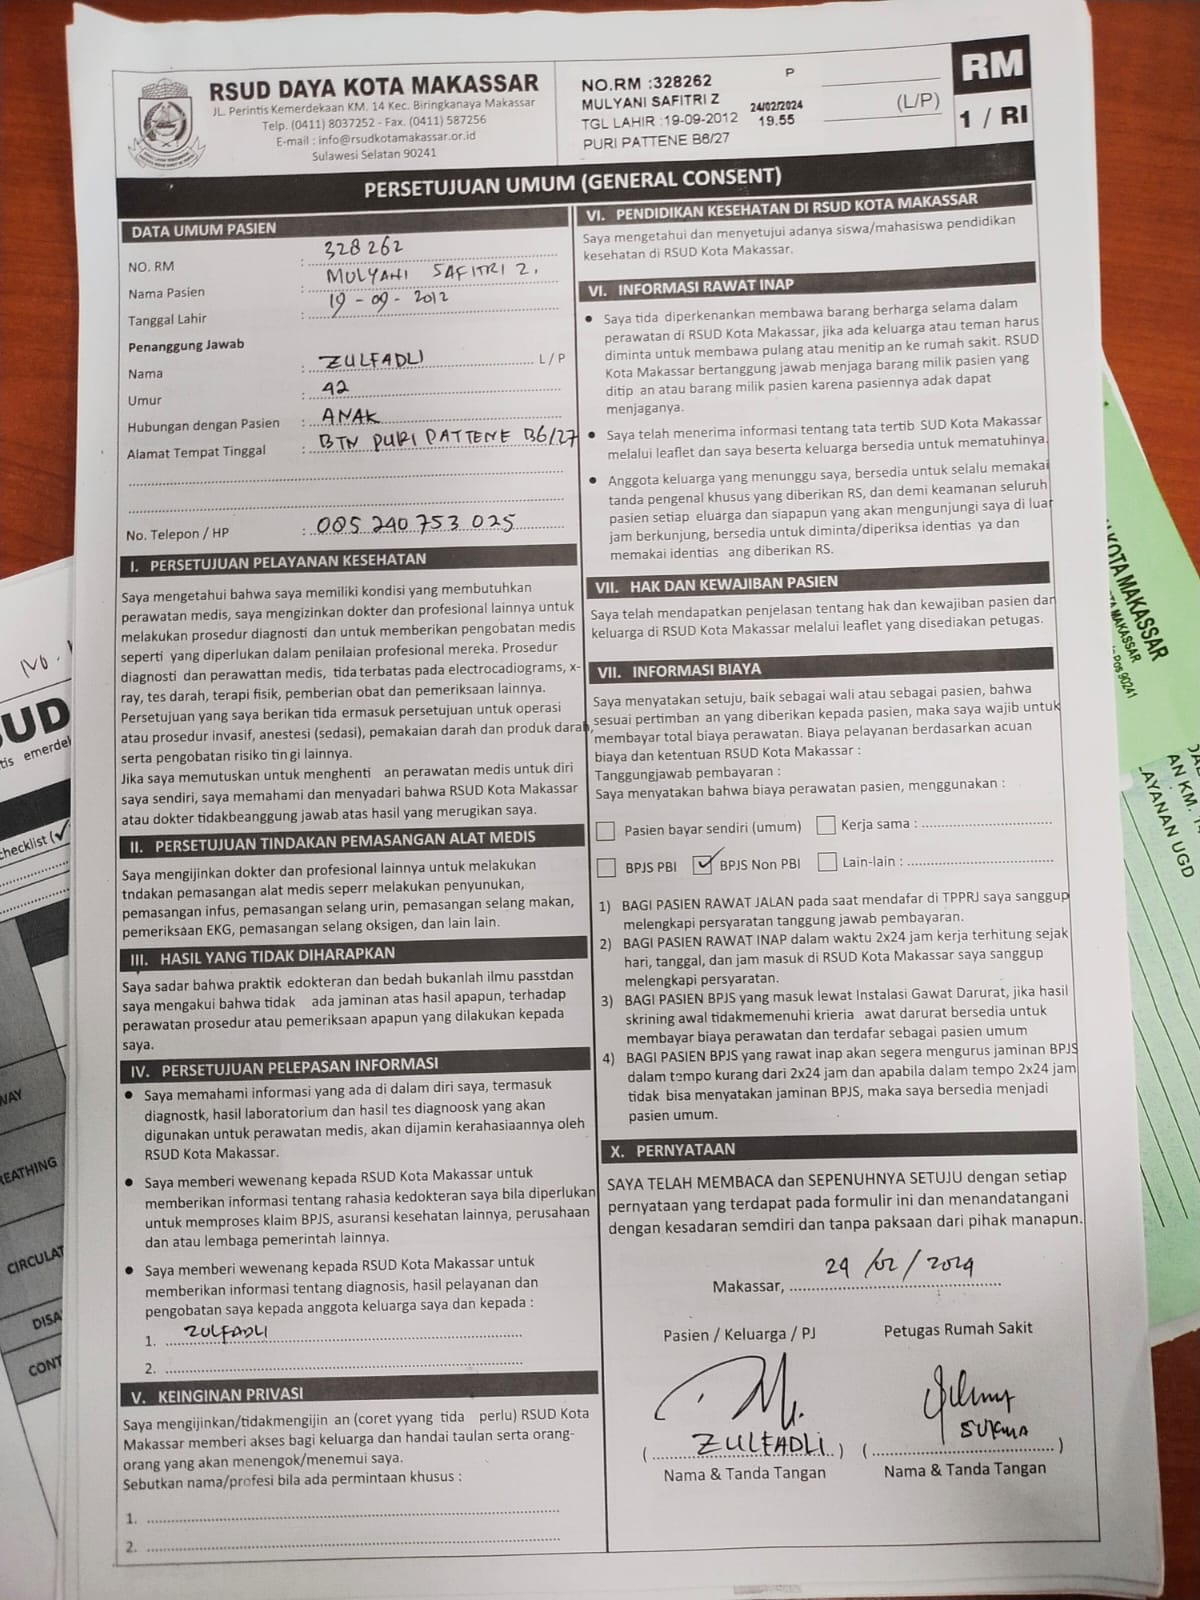 RSUD DAYA KOTA MAKASSAR
JL. Perintis Kemerdekaan KM. 14 Kec. Biringkanaya Makassar
Telp. (0411) 8037252 - Fax. (0411) 587256
E-mail : info@rsudkotamakassar.or.id
Sulawesi Selatan 90241
NO.RM :328262 P
MULYANI SAFITRI Z 24/02/2024
TGL LAHIR :19-09-2012 19.55
PURI PATTENE B6/27
(L/P)
RM
1 / RI
PERSETUJUAN UMUM (GENERAL CONSENT)
DATA UMUM PASIEN
NO. RM : 328262
Nama Pasien : MULYANI SAFITRI Z.
Tanggal Lahir : 19 - 09 - 2012
Penanggung Jawab
Nama : ZULFADLI L / P
Umur : 42
Hubungan dengan Pasien : ANAK
Alamat Tempat Tinggal : BTN PURI PATTENE B6/27
No. Telepon / HP : 085 240 753 025
I. PERSETUJUAN PELAYANAN KESEHATAN
Saya mengetahui bahwa saya memiliki kondisi yang membutuhkan
perawatan medis, saya mengizinkan dokter dan profesional lainnya untuk
melakukan prosedur diagnosti dan untuk memberikan pengobatan medis
seperti yang diperlukan dalam penilaian profesional mereka. Prosedur
diagnosti dan perawattan medis, tida terbatas pada electrocadiograms, x-
ray, tes darah, terapi fisik, pemberian obat dan pemeriksaan lainnya.
Persetujuan yang saya berikan tida ermasuk persetujuan untuk operasi
atau prosedur invasif, anestesi (sedasi), pemakaian darah dan produk darah,
serta pengobatan risiko tin gi lainnya.
Jika saya memutuskan untuk menghenti an perawatan medis untuk diri
saya sendiri, saya memahami dan menyadari bahwa RSUD Kota Makassar
atau dokter tidakbeanggung jawab atas hasil yang merugikan saya.
II. PERSETUJUAN TINDAKAN PEMASANGAN ALAT MEDIS
Saya mengijinkan dokter dan profesional lainnya untuk melakukan
tndakan pemasangan alat medis seperr melakukan penyunukan,
pemasangan infus, pemasangan selang urin, pemasangan selang makan,
pemeriksaan EKG, pemasangan selang oksigen, dan lain lain.
III. HASIL YANG TIDAK DIHARAPKAN
Saya sadar bahwa praktik edokteran dan bedah bukanlah ilmu passtdan
saya mengakui bahwa tidak ada jaminan atas hasil apapun, terhadap
perawatan prosedur atau pemeriksaan apapun yang dilakukan kepada
saya.
IV. PERSETUJUAN PELEPASAN INFORMASI
• Saya memahami informasi yang ada di dalam diri saya, termasuk
diagnostk, hasil laboratorium dan hasil tes diagnoosk yang akan
digunakan untuk perawatan medis, akan dijamin kerahasiaannya oleh
RSUD Kota Makassar.
• Saya memberi wewenang kepada RSUD Kota Makassar untuk
memberikan informasi tentang rahasia kedokteran saya bila diperlukan
untuk memproses klaim BPJS, asuransi kesehatan lainnya, perusahaan
dan atau lembaga pemerintah lainnya.
• Saya memberi wewenang kepada RSUD Kota Makassar untuk
memberikan informasi tentang diagnosis, hasil pelayanan dan
pengobatan saya kepada anggota keluarga saya dan kepada :
1. ZULFADLI
2.
V. KEINGINAN PRIVASI
Saya mengijinkan/tidakmengijin an (coret yyang tida perlu) RSUD Kota
Makassar memberi akses bagi keluarga dan handai taulan serta orang-
orang yang akan menengok/menemui saya.
Sebutkan nama/profesi bila ada permintaan khusus :
1.
2.
VI. PENDIDIKAN KESEHATAN DI RSUD KOTA MAKASSAR
Saya mengetahui dan menyetujui adanya siswa/mahasiswa pendidikan
kesehatan di RSUD Kota Makassar.
VI. INFORMASI RAWAT INAP
• Saya tida diperkenankan membawa barang berharga selama dalam
perawatan di RSUD Kota Makassar, jika ada keluarga atau teman harus
diminta untuk membawa pulang atau menitip an ke rumah sakit. RSUD
Kota Makassar bertanggung jawab menjaga barang milik pasien yang
ditip an atau barang milik pasien karena pasiennya adak dapat
menjaganya.
• Saya telah menerima informasi tentang tata tertib SUD Kota Makassar
melalui leaflet dan saya beserta keluarga bersedia untuk mematuhinya.
• Anggota keluarga yang menunggu saya, bersedia untuk selalu memakai
tanda pengenal khusus yang diberikan RS, dan demi keamanan seluruh
pasien setiap eluarga dan siapapun yang akan mengunjungi saya di luar
jam berkunjung, bersedia untuk diminta/diperiksa identias ya dan
memakai identias ang diberikan RS.
VII. HAK DAN KEWAJIBAN PASIEN
Saya telah mendapatkan penjelasan tentang hak dan kewajiban pasien dan
keluarga di RSUD Kota Makassar melalui leaflet yang disediakan petugas.
VII. INFORMASI BIAYA
Saya menyatakan setuju, baik sebagai wali atau sebagai pasien, bahwa
sesuai pertimban an yang diberikan kepada pasien, maka saya wajib untuk
membayar total biaya perawatan. Biaya pelayanan berdasarkan acuan
biaya dan ketentuan RSUD Kota Makassar :
Tanggungjawab pembayaran :
Saya menyatakan bahwa biaya perawatan pasien, menggunakan :
Pasien bayar sendiri (umum) Kerja sama :
BPJS PBI ✓ BPJS Non PBI Lain-lain :
1) BAGI PASIEN RAWAT JALAN pada saat mendafar di TPPRJ saya sanggup
melengkapi persyaratan tanggung jawab pembayaran.
2) BAGI PASIEN RAWAT INAP dalam waktu 2x24 jam kerja terhitung sejak
hari, tanggal, dan jam masuk di RSUD Kota Makassar saya sanggup
melengkapi persyaratan.
3) BAGI PASIEN BPJS yang masuk lewat Instalasi Gawat Darurat, jika hasil
skrining awal tidakmemenuhi krieria awat darurat bersedia untuk
membayar biaya perawatan dan terdafar sebagai pasien umum
4) BAGI PASIEN BPJS yang rawat inap akan segera mengurus jaminan BPJS
dalam tempo kurang dari 2x24 jam dan apabila dalam tempo 2x24 jam
tidak bisa menyatakan jaminan BPJS, maka saya bersedia menjadi
pasien umum.
X. PERNYATAAN
SAYA TELAH MEMBACA dan SEPENUHNYA SETUJU dengan setiap
pernyataan yang terdapat pada formulir ini dan menandatangani
dengan kesadaran semdiri dan tanpa paksaan dari pihak manapun.
Makassar, 24 /02 / 2024
Pasien / Keluarga / PJ Petugas Rumah Sakit
( ZULFADLI ) ( SUKMA )
Nama & Tanda Tangan Nama & Tanda Tangan
No.
SUD
checklist (✓
CIRCULAT
DISA
CONT
KOTA MAKASSAR
Pos 90241
AN KM.
LAYANAN UGD